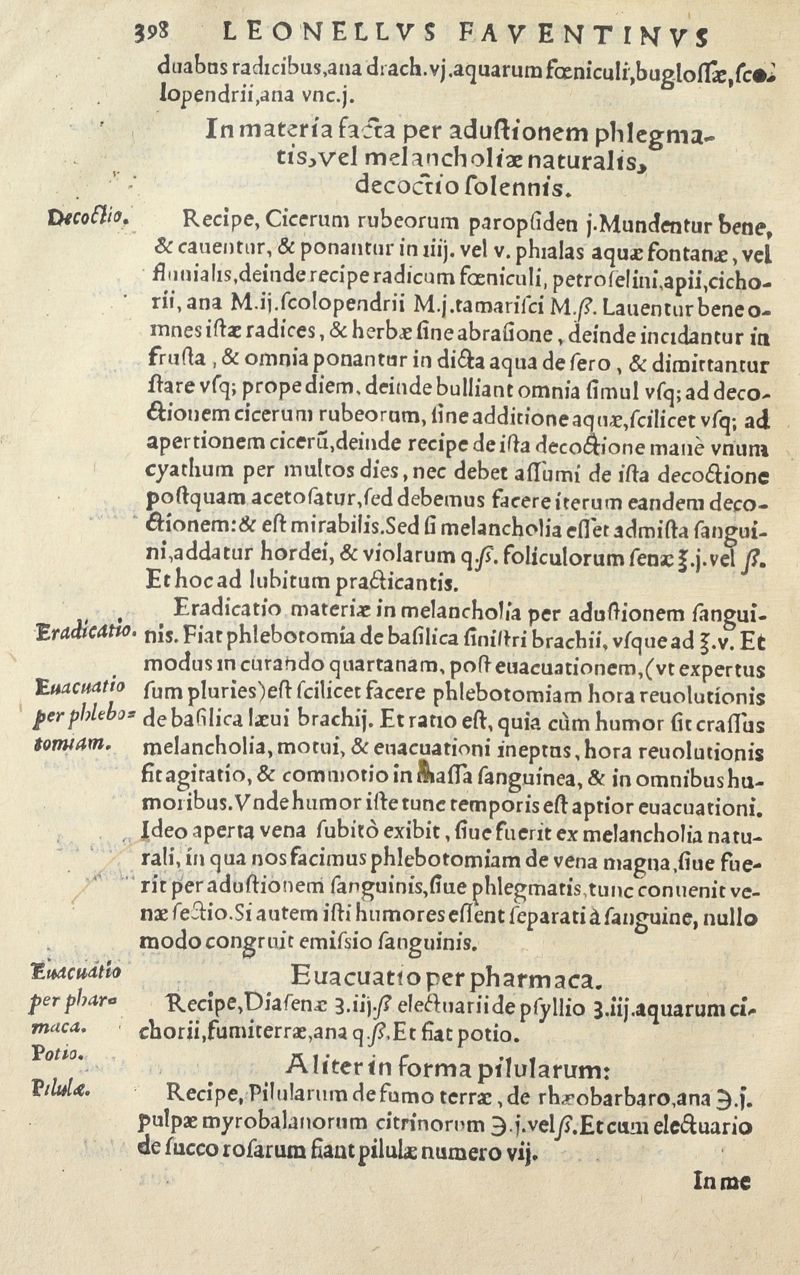 398 LEONELLVS FAVENTINVS
duabus radicibus,ana drach.vj.aquarum fœniculi,buglossæ,sco-
lopendrii,ana vnc.j.
In materia facta per adustionem phlegma-
tis,vel melancholiæ naturalis,
decoctio solennis.
Decoctio.
Recipe, Cicerum rubeorum paropsiden j.Mundentur bene,
& cauentur, & ponantur in iiij. vel v. phialas aquæ fontanæ, vel
fluuialis,deinde recipe radicum fœniculi, petroselini,apii,cicho-
rii, ana M.ij.scolopendrii M.j.tamarisci M.ß. Lauentur bene o-
mnes istæ radices, & herbæ sine abrasione, deinde incidantur in
frusta, & omnia ponantur in dicta aqua de sero, & dimittantur
stare vsq; prope diem, deinde bulliant omnia simul vsq; ad deco-
ctionem cicerum rubeorum, sine additione aquæ,scilicet vsq; ad
apertionem cicerũ,deinde recipe de ista decoctione manè vnum
cyathum per multos dies, nec debet assumi de ista decoctione
postquam acetosatur,sed debemus facere iterum eandem deco-
ctionem:& est mirabilis.Sed si melancholia esset admista sangui-
ni,addatur hordei, & violarum q.ß. foliculorum senæ ℥.j.vel ß.
Et hoc ad lubitum practicantis.
Eradicatio materiæ in melancholia per adustionem sangui-
Eradicatio.
nis. Fiat phlebotomia de basilica sinistri brachii, vsque ad ℥.v. Et
modus in curando quartanam, post euacuationem,(vt expertus
Euacuatio
per phlebo-
tomiam.
sum pluries)est scilicet facere phlebotomiam hora reuolutionis
de basilica læui brachij. Et ratio est, quia cùm humor sit crassus
melancholia, motui, & euacuationi ineptus, hora reuolutionis
fit agitatio, & commotio in massa sanguinea, & in omnibus hu-
moribus.Vnde humor iste tunc temporis est aptior euacuationi.
Ideo aperta vena subitò exibit, siue fuerit ex melancholia natu-
rali, in qua nos facimus phlebotomiam de vena magna,siue fue-
rit per adustionem sanguinis,siue phlegmatis,tunc conuenit ve-
næ sectio.Si autem isti humores essent separati à sanguine, nullo
modo congruit emissio sanguinis.
Euacuatio
per phar-
maca.
Euacuatio per pharmaca.
Recipe,Diasenæ ʒ.iij.ß electuarii de psyllio ʒ.iij.aquarum ci-
chorii,fumiterræ,ana q.ß.Et fiat potio.
Potio.
Aliter in forma pilularum:
Pilulæ.
Recipe, Pilularum de fumo terræ, de rhæobarbaro,ana ℈.j.
pulpæ myrobalanorum citrinorum ℈.j.vel ß.Et cum electuario
de succo rosarum fiant pilulæ numero vij.
In me